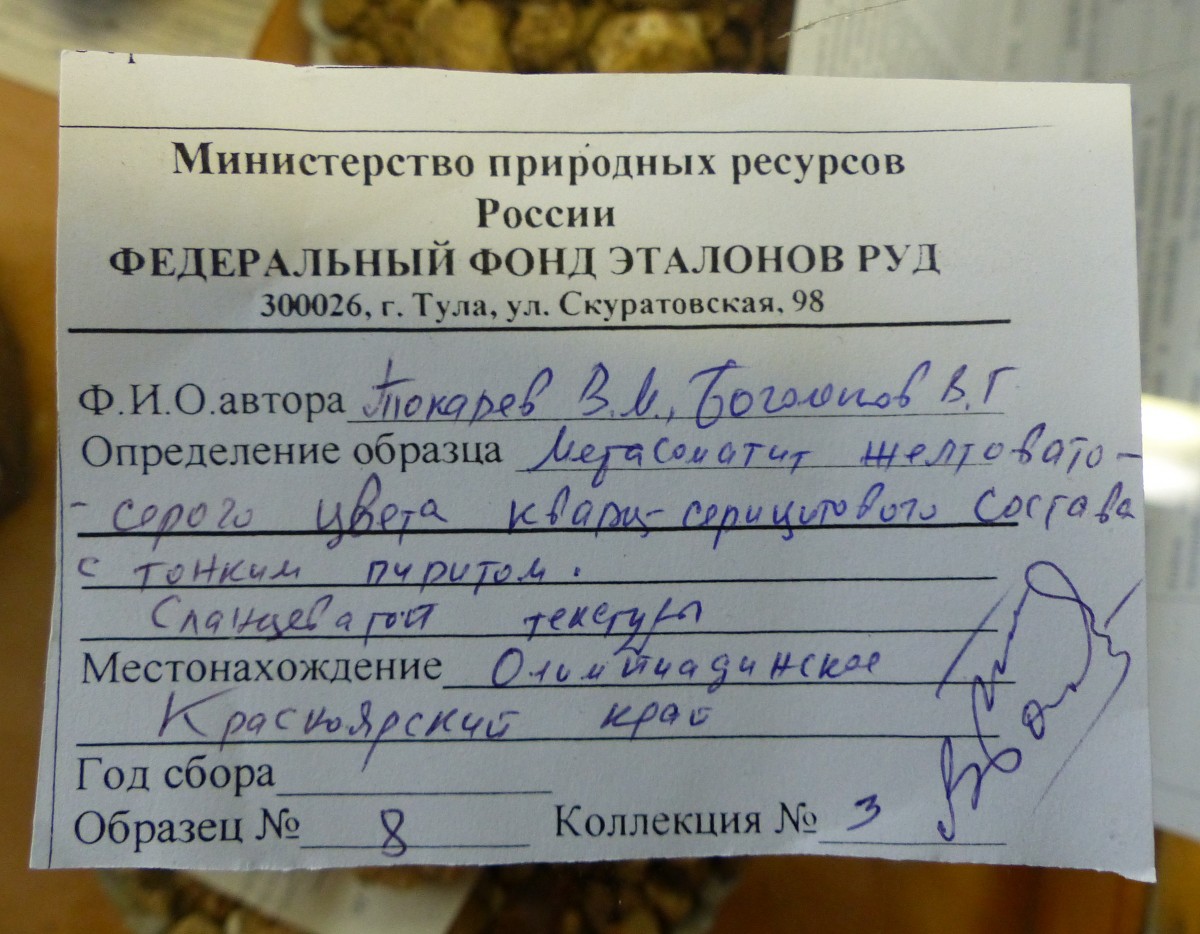 Министерство природных ресурсов
России
ФЕДЕРАЛЬНЫЙ ФОНД ЭТАЛОНОВ РУД
300026, г. Тула, ул. Скуратовская, 98
Ф.И.О.автора Токарев В.М., В.Г
Определение образца Метасоматит желтовато-
- серого цвета кварц-серицитового состава
с тонким пиритом.
Сланцеватой текстуры
Местонахождение Олимпиадинское
Красноярский край
Год сбора
Образец № 8 Коллекция № 3